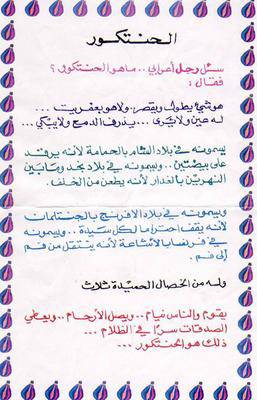 الحنتكور
سئل رجل أعرابي .. ما هو الحنتكور ؟
فقال :
هو شئ يطول ويقصر .. ولا هو بعفريت ...
له عين ولا يرى ... يذرف الدمع ولا يبكي ..
يسمونه في بلاد الشام بالحمامة لأنه يرقد
على بيضتين .. ويسمونه في بلاد نجد ومابين
النهرين بالغدار لأنه يطعن من الخلف .
ويسمونه في بلاد الافرنج بالجنتلمان
لأنه يقف احتراما لكل سيدة .. ويسمونه
في فرنسا بالاشاعة لأنه ينتقل من فم
إلى فم .
وله من الخصال الحميدة ثلاث
يقوم والناس نيام .. ويصل الأرحام .. ويعطي
الصدقات سرا في الظلام ...
ذلك هو الحنتكور ...